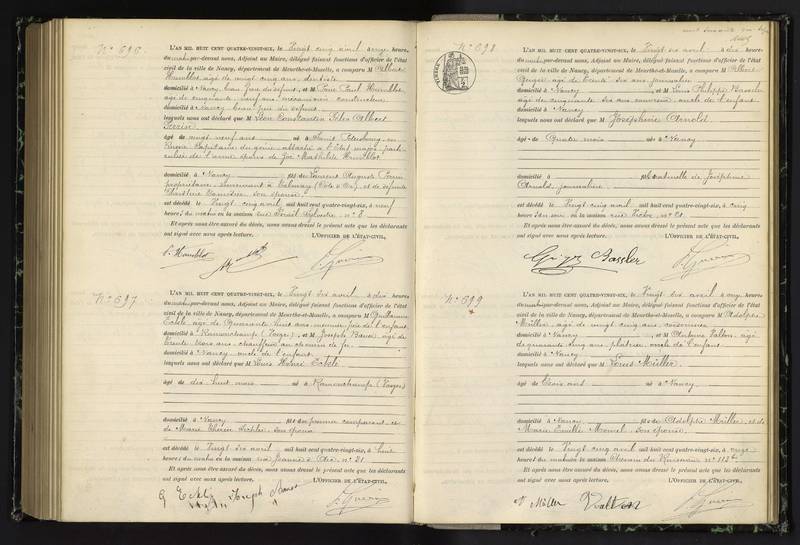 N° 696
L'AN MIL HUIT CENT QUATRE-VINGT-SIX, le Vingt cinq avril à onze heures
du matin, par-devant nous, Adjoint au Maire, délégué faisant fonctions d'officier de l'état
civil de la ville de Nancy, département de Meurthe-et-Moselle, a comparu M Albert
Humblot, âgé de vingt cinq ans, dentiste
domicilié à Nancy, beau frère du défunt, et M Paul Humblot
âgé de cinquante neuf ans, mécanicien constructeur
domicilié à Nancy beau père du défunt
lesquels nous ont déclaré que M Léon Constantin Jules Albert
Perrin
âgé de vingt neuf ans né à Saint Petersbourg en
Russie Capitaine du génie attaché à l'Etat major
de l'armée époux de Mathilde Humblot
domicilié à Nancy fils de Laurent Auguste Perrin
propriétaire demeurant à (Côte d'Or), et de défunte
son épouse
est décédé le Vingt cinq avril mil huit cent quatre-vingt-six, à neuf
heures du matin en la maison rue n° 8
Et après nous être assuré du décès, nous avons dressé le présent acte que les déclarants
ont signé avec nous après lecture. L'OFFICIER DE L'ÉTAT-CIVIL,
P. Humblot
N° 697
L'AN MIL HUIT CENT QUATRE-VINGT-SIX, le Vingt six avril à dix heures
du matin, par-devant nous, Adjoint au Maire, délégué faisant fonctions d'officier de l'état
civil de la ville de Nancy, département de Meurthe-et-Moselle, a comparu M Guillaume
âgé de Quarante huit ans, père de l'enfant
domicilié à Ramonchamp (Vosges), et M Joseph âgé de
trente trois ans, chauffeur au chemin de fer
domicilié à Nancy oncle de l'enfant
lesquels nous ont déclaré que M Louis Henri
âgé de dix huit mois né à Ramonchamp (Vosges)
domicilié à Nancy fils du premier comparant et
de Marie son épouse
est décédé le Vingt six avril mil huit cent quatre-vingt-six, à huit
heures du matin en la maison rue Jeanne d'Arc n° 21
Et après nous être assuré du décès, nous avons dressé le présent acte que les déclarants
ont signé avec nous après lecture. L'OFFICIER DE L'ÉTAT-CIVIL,
N° 698
L'AN MIL HUIT CENT QUATRE-VINGT-SIX, le Vingt six avril à dix heures
du matin, par-devant nous, Adjoint au Maire, délégué faisant fonctions d'officier de l'état
civil de la ville de Nancy, département de Meurthe-et-Moselle, a comparu M
âgé de trente six ans, journalier
domicilié à Nancy et M Louis Philippe Bassler
âgé de cinquante six ans oncle de l'enfant
domicilié à Nancy
lesquels nous ont déclaré que M Joséphine Arnold
âgé de Quatre mois né à Nancy
domicilié à fille naturelle de Joséphine
Arnold, journalière
est décédé le Vingt cinq avril mil huit cent quatre-vingt-six, à cinq
heures du soir en la maison rue n° 21
Et après nous être assuré du décès, nous avons dressé le présent acte que les déclarants
ont signé avec nous après lecture. L'OFFICIER DE L'ÉTAT-CIVIL,
Bassler
N° 699
L'AN MIL HUIT CENT QUATRE-VINGT-SIX, le Vingt six avril à onze heures
du matin, par-devant nous, Adjoint au Maire, délégué faisant fonctions d'officier de l'état
civil de la ville de Nancy, département de Meurthe-et-Moselle, a comparu M Adolphe
Müller, âgé de vingt cinq ans
domicilié à Nancy et M âgé
de quarante cinq ans, plâtrier, oncle de l'enfant
domicilié à Nancy
lesquels nous ont déclaré que M Louis Müller
âgé de trois ans né à Nancy
domicilié à Nancy fils de Adolphe Müller, et de
Marie Emilie son épouse
est décédé le Vingt cinq avril mil huit cent quatre-vingt-six, à onze
heures du matin en la maison n° 112
Et après nous être assuré du décès, nous avons dressé le présent acte que les déclarants
ont signé avec nous après lecture. L'OFFICIER DE L'ÉTAT-CIVIL,
Müller